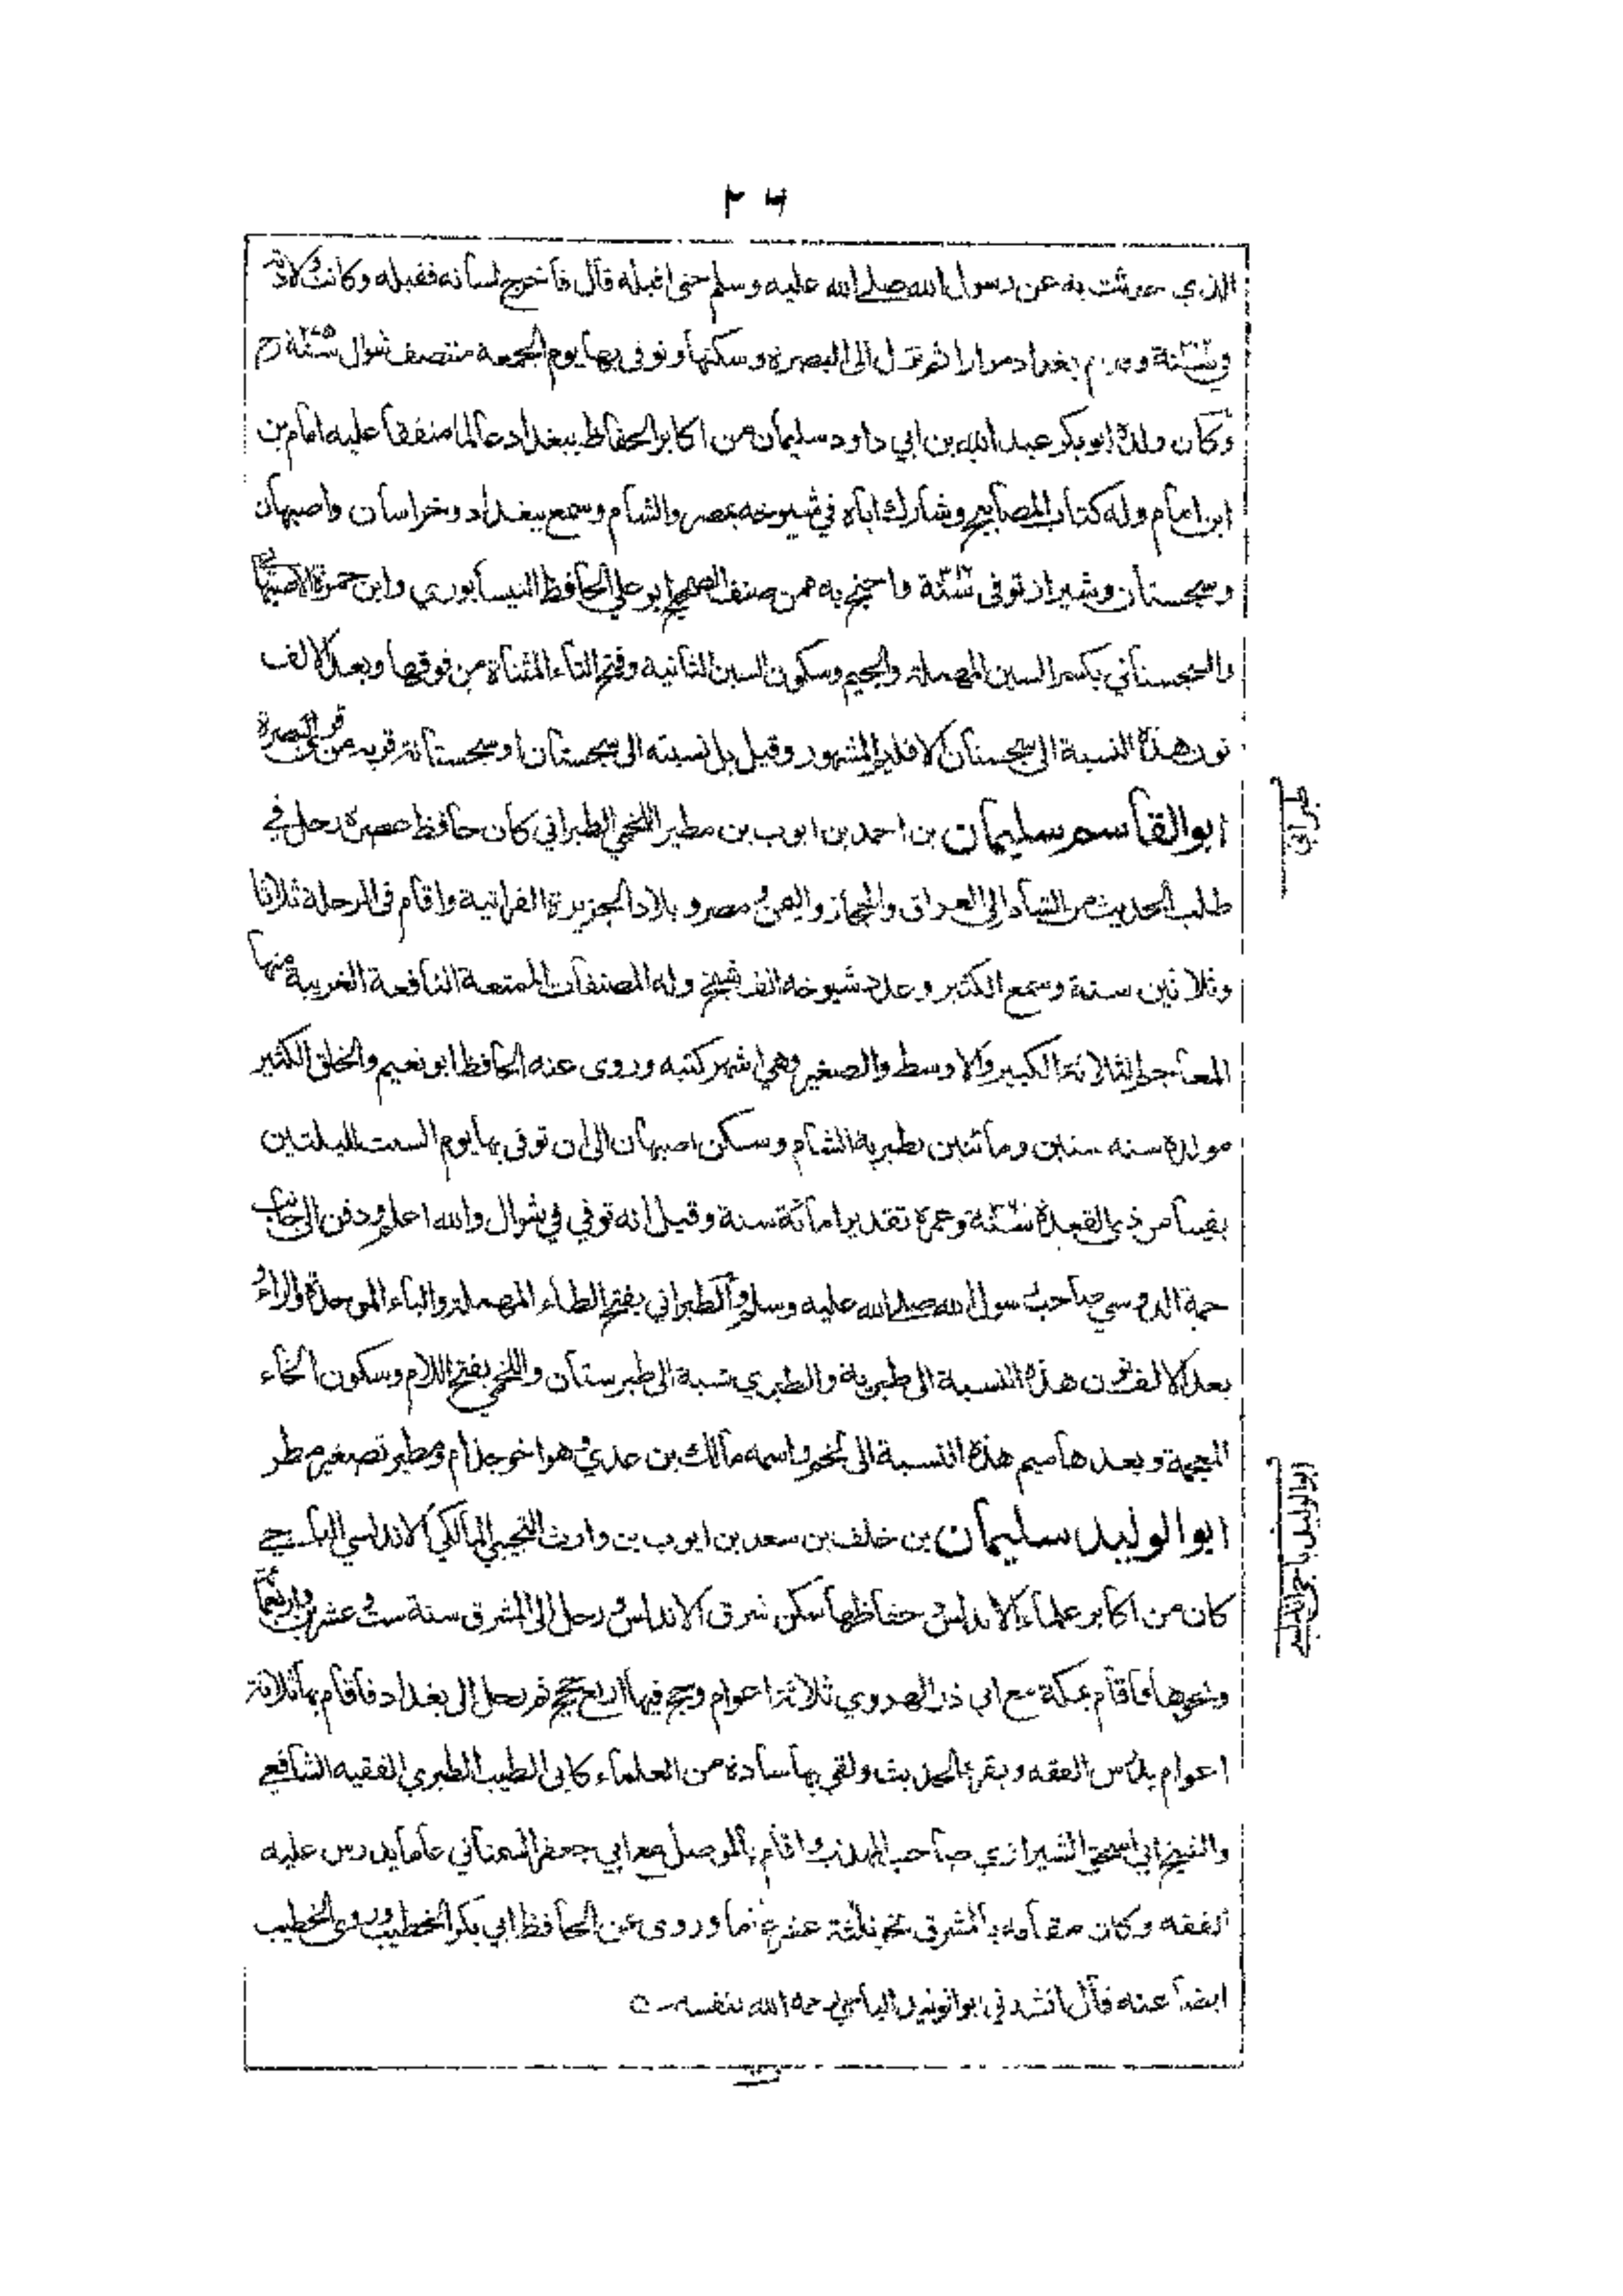 ٢٦
الذي حدثت به عن رسول الله صلى الله عليه وسلم حتى اقبله قال فاخرج لسانه فقبله وكانت ولادته
في سنة ٢٠٢ وقدم بغداد مرارا ثم نزل الى البصرة وسكنها وتوفى بها يوم الجمعة منتصف شوال سنة ٢٧٥ رح
وكان ولده ابو بكر عبد الله بن ابي داود سليمان من اكابر الحفاظ ببغداد عالما متفقا عليه امام بن
ابن امام وله كتاب المصابيح وشارك اباه في شيوخه بمصر والشام وسمع ببغداد وخراسان واصبهان
وسجستان وشيراز توفى سنة ٣١٦ واحتج به ممن صنف الصحيح ابو علي الحافظ النيسابوري وابن حمزة الاصبهاني
والسجستاني بكسر السين المهملة والجيم وسكون السين الثانية وفتح التاء المثناة من فوقها وبعد الالف
نون هذه النسبة الى سجستان الاقليم المشهور وقيل بل نسبته الى سجستان او سجستانة قرية من قرى البصرة
ابو القاسم سليمان بن احمد بن ايوب بن مطير اللخمي الطبراني كان حافظ عصره رحل في
طلب الحديث من الشام الى العراق والحجاز واليمن و مصر و بلاد الجزيرة الفراتية واقام في الرحلة ثلاثا
وثلاثين سنة وسمع الكثير وعدد شيوخه الف شيخ وله المصنفات الممتعة النافعة الغريبة منها
المعاجم الثلاثة الكبير والاوسط والصغير وهي اشهر كتبه وروى عنه الحافظ ابو نعيم والخلق الكثير
مولده سنه ستين ومأتين بطبرية الشام وسكن اصبهان الى ان توفى بها يوم السبت لليلتين
بقيتا من ذي القعدة سنة ٣٦٠ وعمره تقديرا مائة سنة وقيل انه توفي في شوال والله اعلم ودفن الى جانب
حمة الدوسي صاحب رسول الله صلى الله عليه وسلم والطبراني بفتح الطاء المهملة والباء الموحدة والراء و
بعد الالف نون هذه النسبة الى طبرية والطبري نسبة الى طبرستان واللخمي بفتح اللام وسكون الخاء
المعجمة وبعدها ميم هذه النسبة الى لخم واسمه مالك بن عدي وهو اخو جذام ومطير تصغير مطر
ابو الوليد سليمان بن خلف بن سعد بن ايوب بن وارث التجيبي المالكي الاندلسي الباجي
كان من اكابر علماء الاندلس و حفاظها سكن شرق الاندلس و رحل الى المشرق سنة ست و عشرين واربعمائة
ونحوها فاقام بمكة مع ابي ذر الهروي ثلاثة اعوام وحج فيها اربع حجج ثم رحل الى بغداد فاقام بها ثلاثة
اعوام يدرس الفقه ويقرء الحديث ولقي بها سادة من العلماء كابي الطيب الطبري الفقيه الشافعي
والشيخ ابي اسحق الشيرازي صاحب المهذب واقام بالموصل مع ابي جعفر السمناني عاما يدرس عليه
الفقه وكان مقامه بالمشرق نحو ثلثة عشر عاما وروى عن الحافظ ابي بكر الخطيب وروى الخطيب
ايضا عنه قال انشدني ابو الوليد الباجي رحمه الله لنفسه
طبراني
ابو الوليد باجي اندلسي